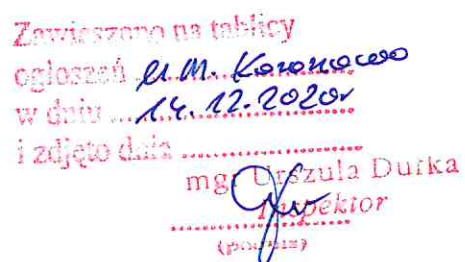 Zawieszono na tablicy
ogłoszeń U.M. Karczewo
w dniu ...14.12.2020r
i zdjęto dnia ..................
mgr Urszula Durka
Inspektor
..................
(podpis)